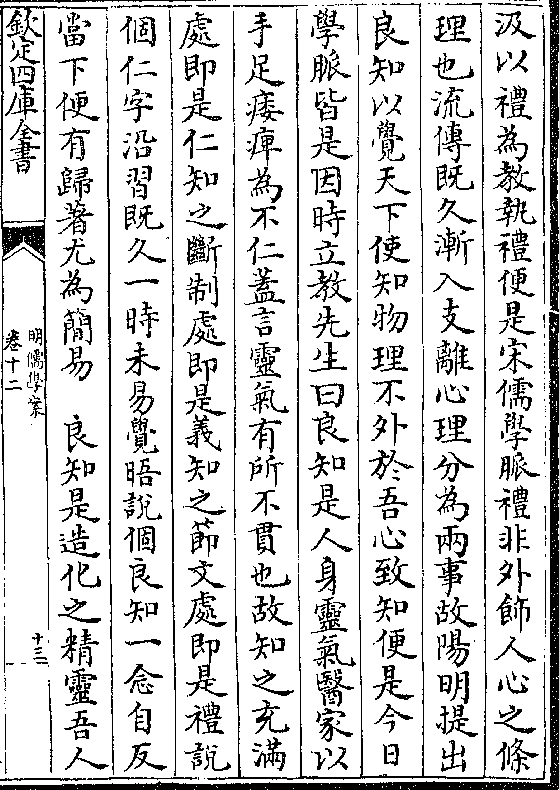 汲以禮為教執禮便是宋儒學脈禮非外飾人心之條
理也流傳既久漸入支離心理分為兩事故陽明提出
良知以覺天下使知物理不外於吾心致知便是今日
學脈皆是因時立教先生曰良知是人身靈氣醫家以
手足痿痺為不仁蓋言靈氣有所不貫也故知之充滿
處即是仁知之斷制處即是義知之節文處即是禮說
個仁字沿習既久一時未易覺晤說個良知一念自反
當下便有歸著尤為簡易　良知是造化之精靈吾人
欽定四庫全書
明儒學案
卷十二
十三